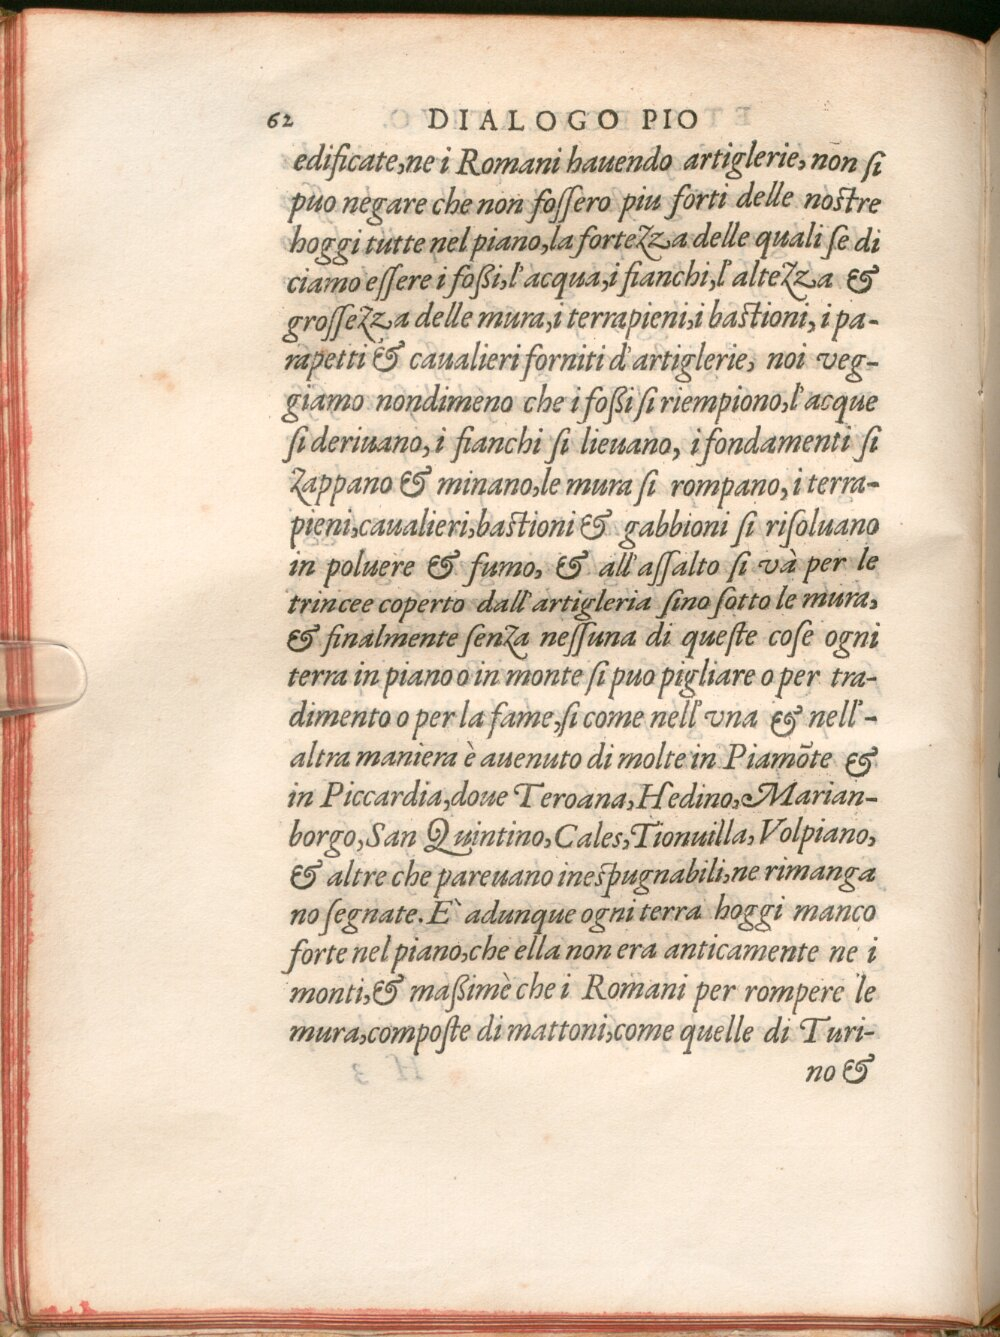 62 DIALOGO PIO
edificate, ne i Romani hauendo artiglerie, non si
puo negare che non fossero piu forti delle nostre
hoggi tutte nel piano, la fortezza delle quali se di
ciamo essere i foßi, l'acqua, i fianchi, l'altezza &
grossezza delle mura, i terrapieni, i bastioni, i pa-
rapetti & caualieri forniti d'artiglerie, noi veg-
giamo nondimeno che i foßi si riempiono, l'acque
si deriuano, i fianchi si lieuano, i fondamenti si
zappano & minano, le mura si rompano, i terra-
pieni, caualieri, bastioni & gabbioni si risoluano
in poluere & fumo, & all'assalto si và per le
trincee coperto dall'artigleria sino sotto le mura,
& finalmente senza nessuna di queste cose ogni
terra in piano o in monte si puo pigliare o per tra-
dimento o per la fame, si come nell'vna & nell'-
altra maniera è auenuto di molte in Piamõte &
in Piccardia, doue Teroana, Hedino, Marian-
borgo, San Quintino, Cales, Tionuilla, Volpiano,
& altre che pareuano inespugnabili, ne rimanga
no segnate. E` adunque ogni terra hoggi manco
forte nel piano, che ella non era anticamente ne i
monti, & maßimè che i Romani per rompere le
mura, composte di mattoni, come quelle di Turi-
no &